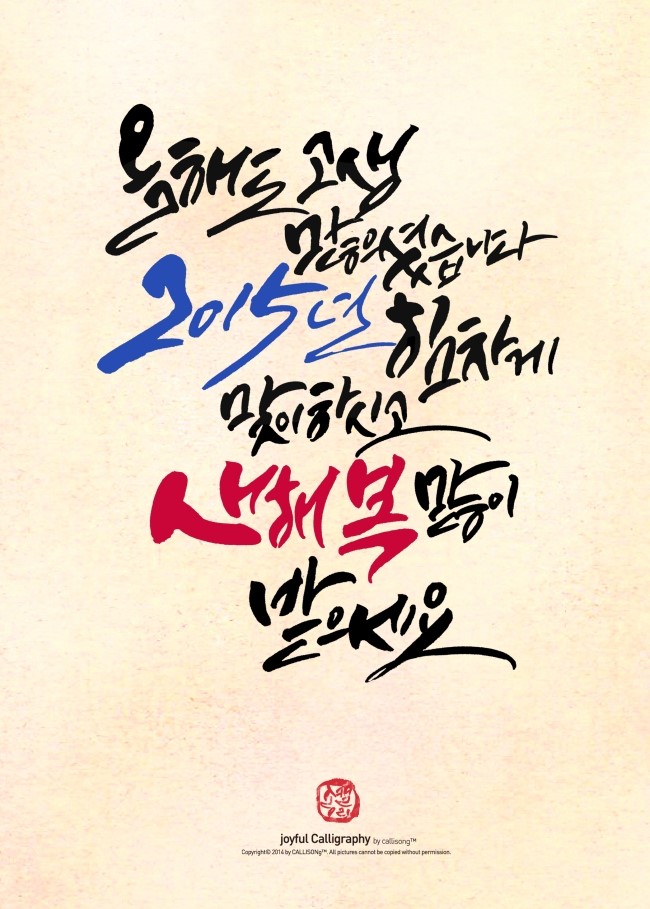 올해도 고생
많으셨습니다
2015년 힘차게
맞이하시고
새해 복 많이
받으세요
joyful Calligraphy by callisong™
Copyright© 2014 by CALLISONg™. All pictures cannot be copied without permission.